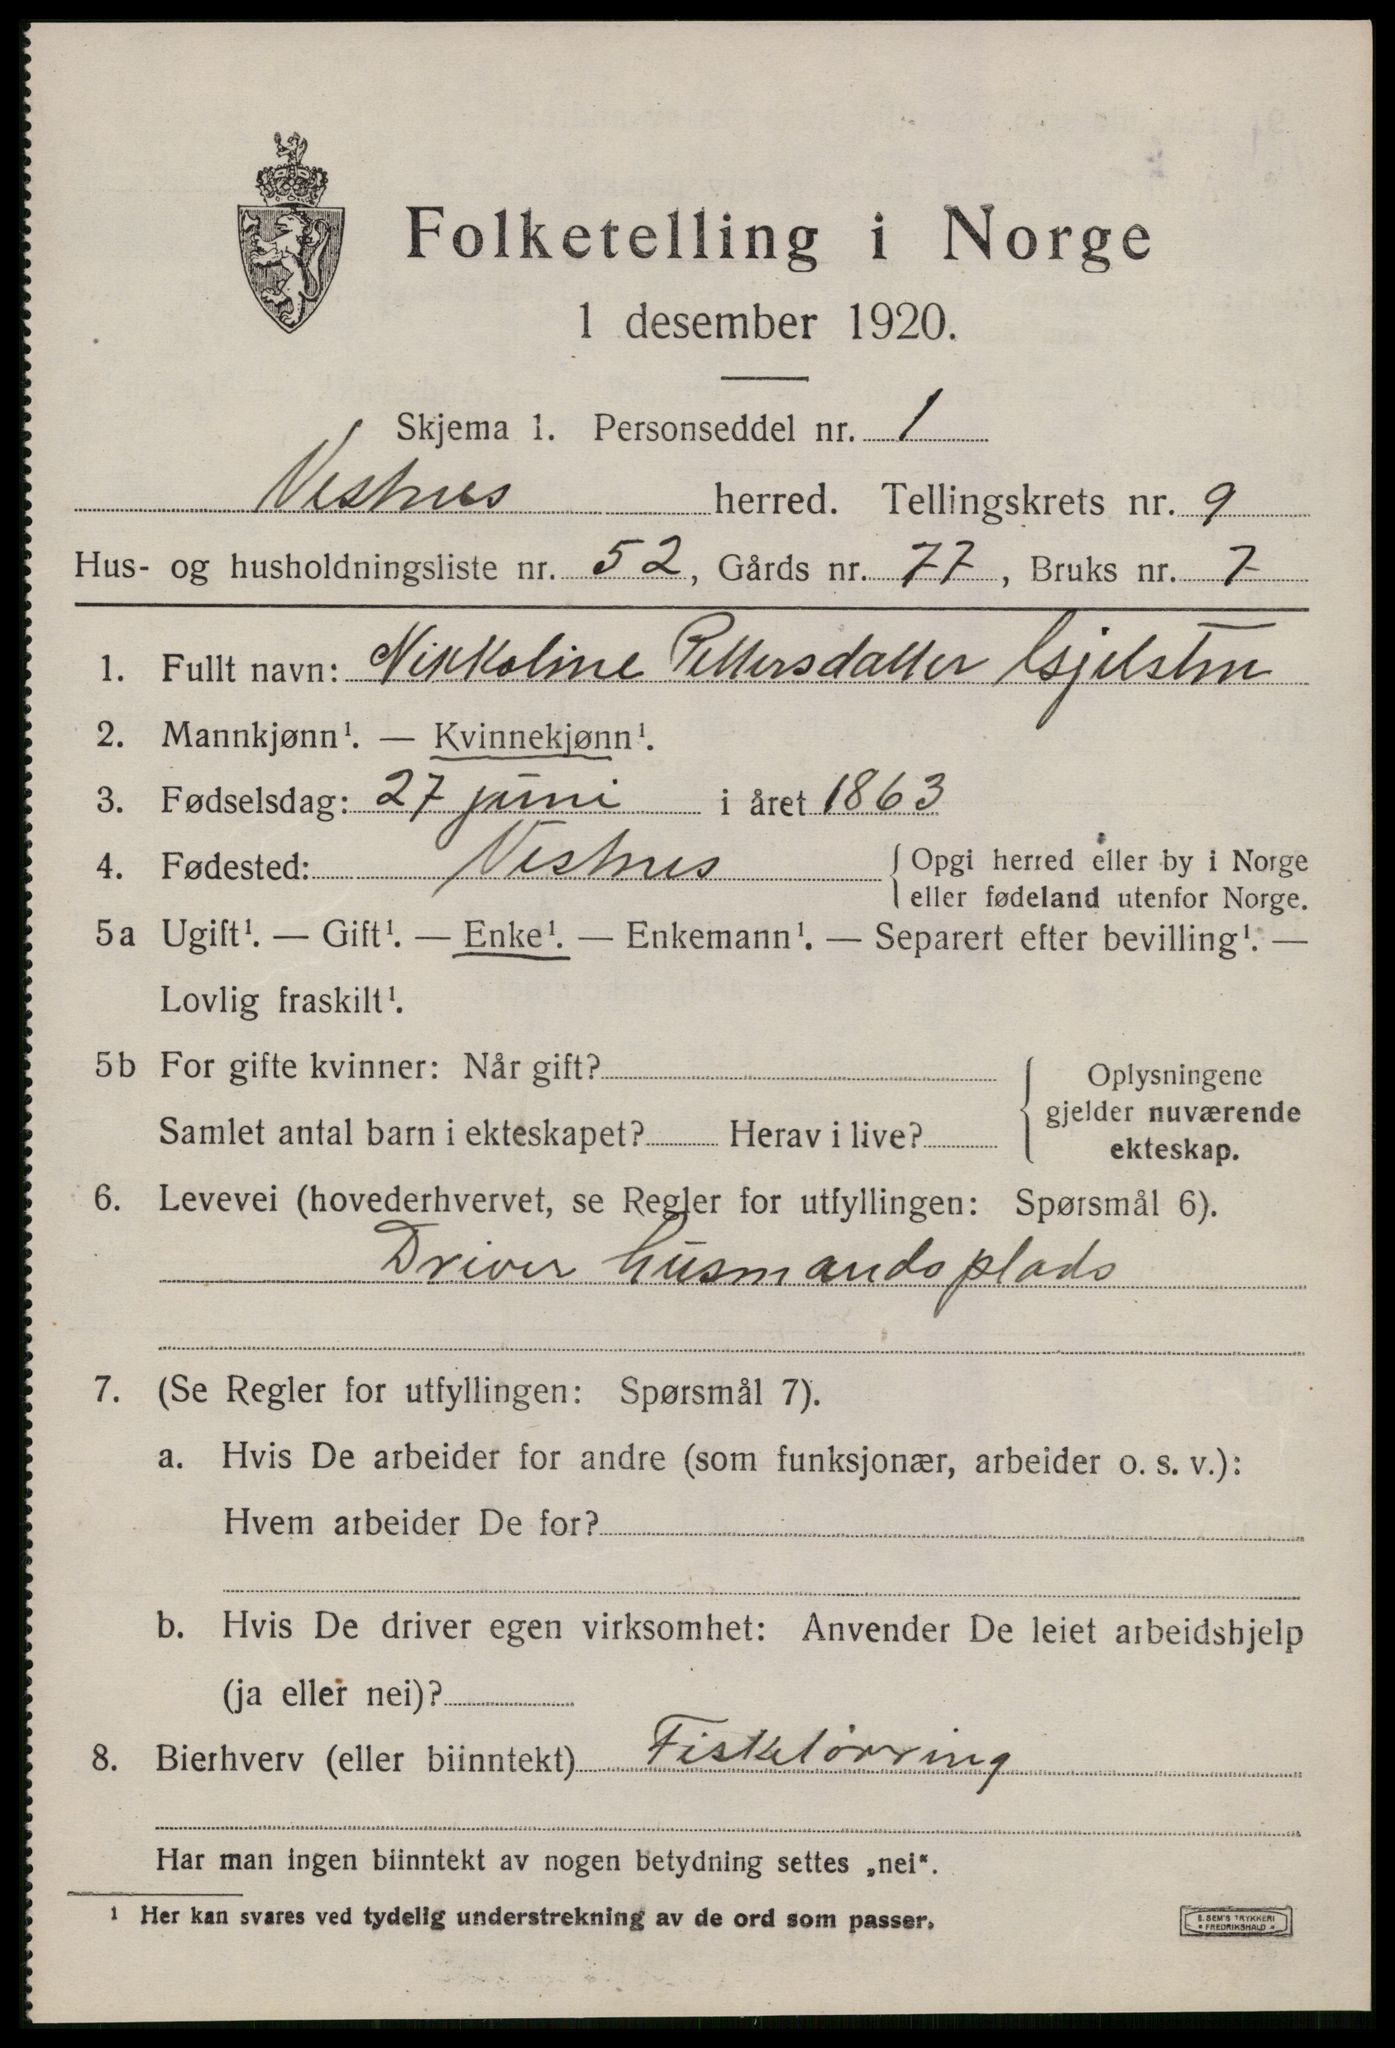 Folketelling i Norge
1 desember 1920.
Skjema 1. Personseddel nr. 1
Vestnes herred. Tellingskrets nr. 9
Hus- og husholdningsliste nr. 52, Gårds nr. 77, Bruks nr. 7
1. Fullt navn: Nikkoline Pettersdatter Gjelsten
2. Mannkjønn¹. — Kvinnekjønn¹.
3. Fødselsdag: 27 juni i året 1863
4. Fødested: Vestnes { Opgi herred eller by i Norge
eller fødeland utenfor Norge.
5a Ugift¹. — Gift¹. — Enke¹. — Enkemann¹. — Separert efter bevilling¹. —
Lovlig fraskilt¹.
5b For gifte kvinner: Når gift?
Samlet antal barn i ekteskapet? Herav i live?
{ Oplysningene
gjelder nuværende
ekteskap.
6. Levevei (hovederhvervet, se Regler for utfyllingen: Spørsmål 6).
Driver husmandsplads
7. (Se Regler for utfyllingen: Spørsmål 7).
a. Hvis De arbeider for andre (som funksjonær, arbeider o. s. v.):
Hvem arbeider De for?
b. Hvis De driver egen virksomhet: Anvender De leiet arbeidshjelp
(ja eller nei)?
8. Bierhverv (eller biinntekt) Fisketørring
Har man ingen biinntekt av nogen betydning settes „nei“.
¹ Her kan svares ved tydelig understrekning av de ord som passer.
E. SEM'S TRYKKERI
FREDRIKSHALD